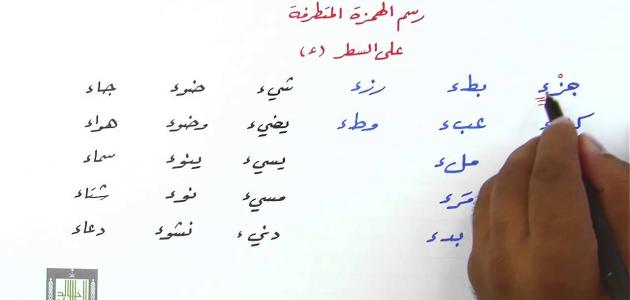 رسم الهمزة المتطرفة
على السطر (ء)
جزء بطء رزء شيء ضوء جاء
عبء وطء يضيء وضوء هواء
ملء يسيء ينوء سماء
مرء مسيء نوء شتاء
بدء دنيء نشوء دعاء